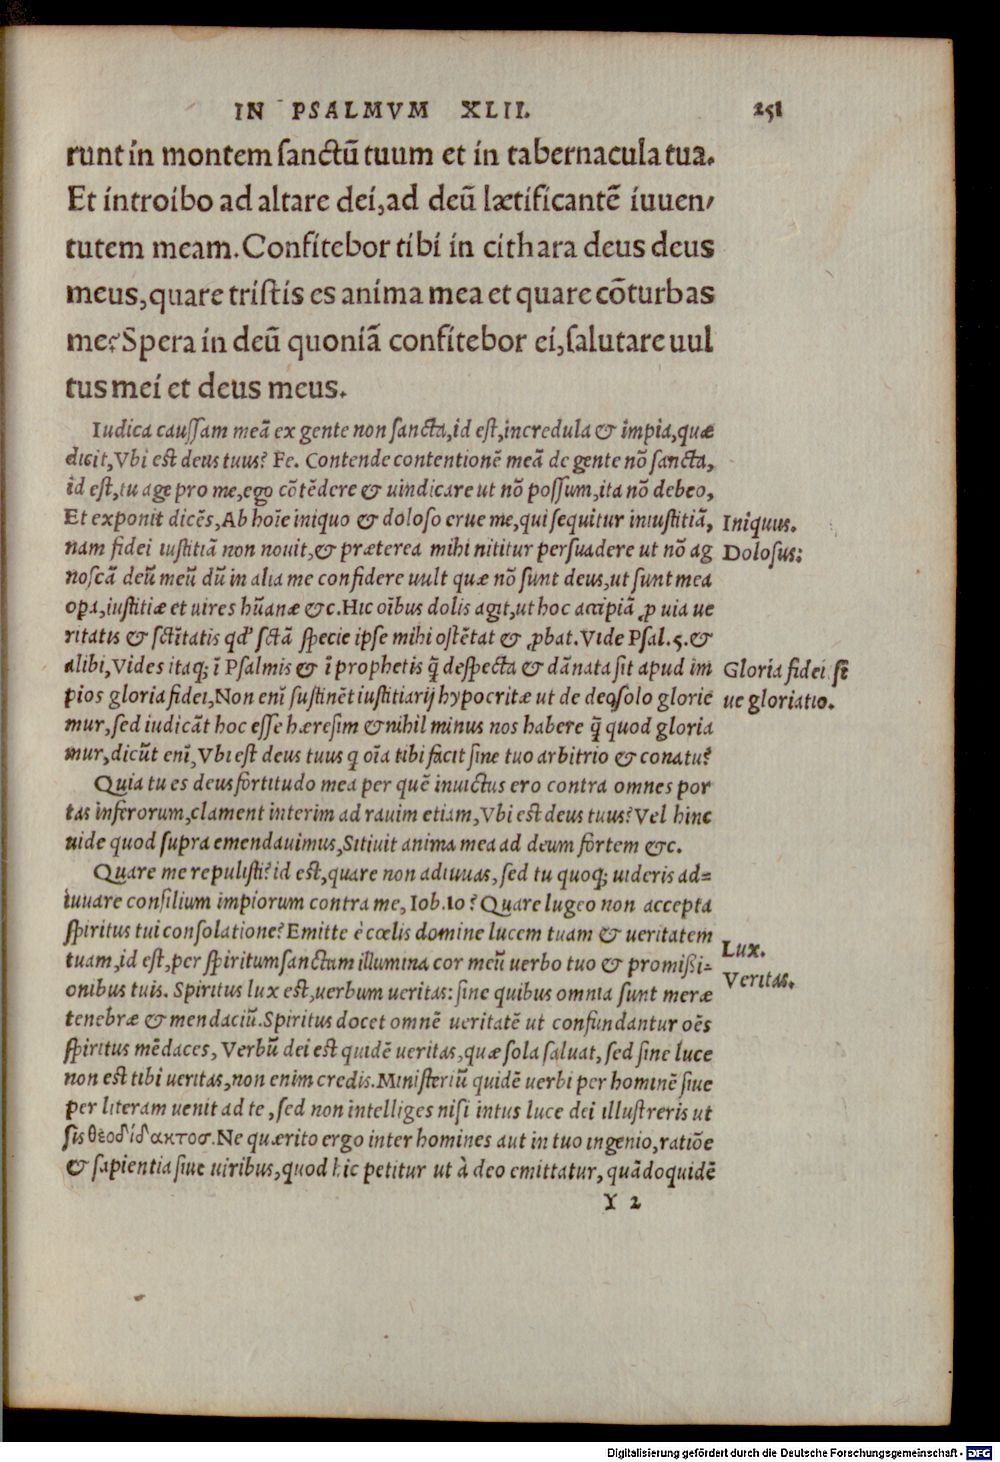 IN PSALMVM XLII. 251
runt in montem sanctū tuum et in tabernacula tua.
Et introibo ad altare dei, ad deū lætificantē iuuen/
tutem meam. Confitebor tibi in cithara deus deus
meus, quare tristis es anima mea et quare cōturbas
me? Spera in deū quoniā confitebor ei, salutare uul
tus mei et deus meus.
Iudica caussam meā ex gente non sancta, id est, incredula & impia, quæ
dicit, Vbi est deus tuus? Fe. Contende contentionē meā de gente nō sancta,
id est, tu age pro me, ego cōtēdere & uindicare ut nō possum, ita nō debeo,
Et exponit dicēs, Ab hoīe iniquo & doloso erue me, qui sequitur iniustitiā,
Iniquus.
nam fidei iustitiā non nouit, & præterea mihi nititur persuadere ut nō ag
Dolosus:
noscā deū meū dū in alia me confidere uult quæ nō sunt deus, ut sunt mea
opa, iustitiæ et uires hūanæ &c. Hic oībus dolis agit, ut hoc accipiā ꝓ uia ue
ritatis & sctītatis qd' sctā specie ipse mihi ostētat & ꝓbat. Vide Psal. 5. &
alibi, Vides itaq; ī Psalmis & ī prophetis q̄ despecta & dānata sit apud im
Gloria fidei sē
pios gloria fidei, Non enī sustinēt iustitiarij hypocritæ ut de deo solo glorie
ue gloriatio.
mur, sed iudicāt hoc esse hæresim & nihil minus nos habere q̄ quod gloria
mur, dicūt enī, Vbi est deus tuus q oīa tibi facit sine tuo arbitrio & conatu?
Quia tu es deus fortitudo mea per quē inuictus ero contra omnes por
tas inferorum, clament interim ad rauim etiam, Vbi est deus tuus? Vel hinc
uide quod supra emendauimus, Sitiuit anima mea ad deum fortem &c.
Quare me repulisti? id est, quare non adiuuas, sed tu quoq; uideris ad=
iuuare consilium impiorum contra me, Iob. 10? Quare lugeo non accepta
spiritus tui consolatione? Emitte è cœlis domine lucem tuam & ueritatem
Lux.
tuam, id est, per spiritum sanctum illumina cor meū uerbo tuo & promissi=
Veritas.
onibus tuis. Spiritus lux est, uerbum ueritas: sine quibus omnia sunt meræ
tenebræ & mendaciū. Spiritus docet omnē ueritatē ut confundantur oēs
spiritus mēdaces, Verbū dei est quidē ueritas, quæ sola saluat, sed sine luce
non est tibi ueritas, non enim credis. Ministeriū quidē uerbi per hominē siue
per literam uenit ad te, sed non intelliges nisi intus luce dei illustreris ut
sis θεοδίδακτοσ. Ne quærito ergo inter homines aut in tuo ingenio, ratiōe
& sapientia siue uiribus, quod hic petitur ut à deo emittatur, quādoquidē
Y 2
Digitalisierung gefördert durch die Deutsche Forschungsgemeinschaft - DFG